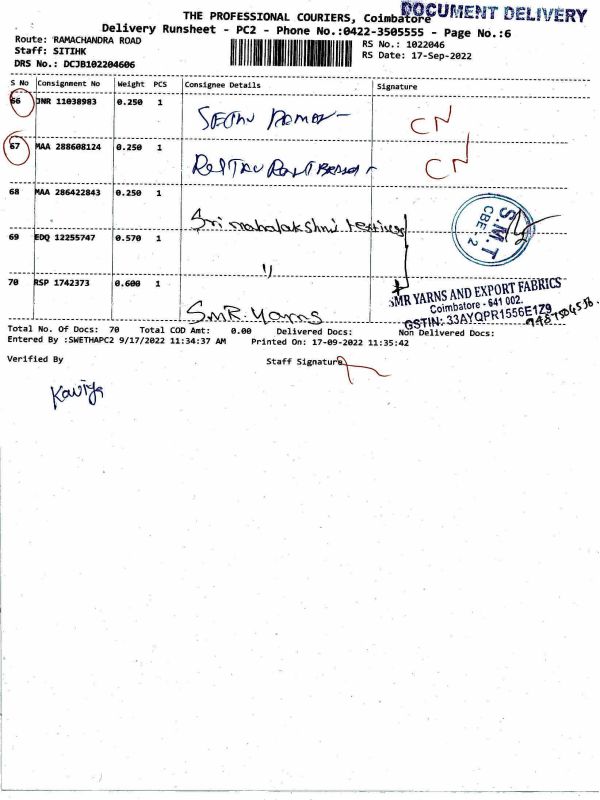 DOCUMENT DELIVERY
THE PROFESSIONAL COURIERS, Coimbatore
Delivery Runsheet - PC2 - Phone No.:0422-3505555 - Page No.:6
Route: RAMACHANDRA ROAD
RS No.: 1022046
Staff: SITIHK
RS Date: 17-Sep-2022
DRS No.: DCJB102204606
S No Consignment No Weight PCS Consignee Details Signature
66 JNR 11038983 0.250 1 CN
67 MAA 288608124 0.250 1 CN
68 MAA 286422843 0.250 1 Sri mahalakshmi
S.M.T
CBE-2
69 EDQ 12255747 0.570 1 "
70 RSP 1742373 0.600 1 SMR. Yarns
SMR YARNS AND EXPORT FABRICS
Coimbatore - 641 002.
GSTIN: 33AYQPR1556E1Z9
Total No. Of Docs: 70 Total COD Amt: 0.00 Delivered Docs: Non Delivered Docs:
Entered By :SWETHAPC2 9/17/2022 11:34:37 AM Printed On: 17-09-2022 11:35:42
Verified By Staff Signature
Kaviya